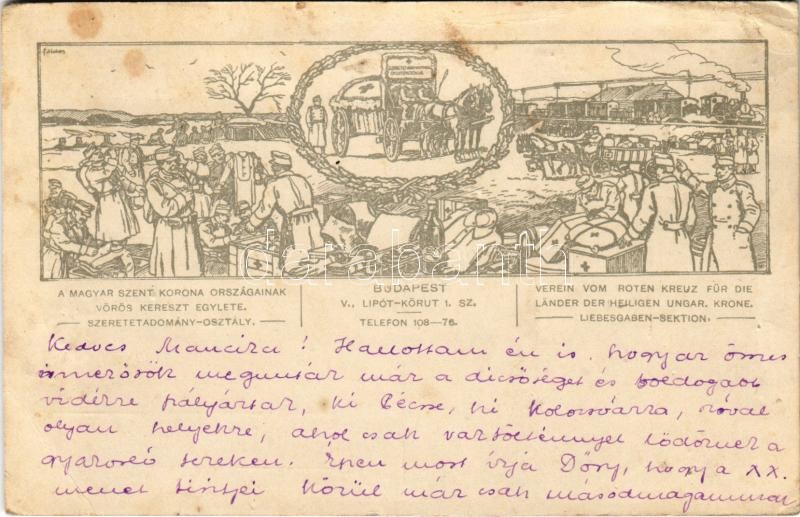 A MAGYAR SZENT KORONA ORSZÁGAINAK
VÖRÖS KERESZT EGYLETE.
SZERETETADOMÁNY-OSZTÁLY.
BUDAPEST
V., LIPÓT-KÖRUT 1. SZ.
TELEFON 108—76.
VEREIN VOM ROTEN KREUZ FÜR DIE
LÄNDER DER HEILIGEN UNGAR. KRONE.
LIEBESGABEN-SEKTION.
darabanth
Kedves Mancika! Hallottam én is, hogyar összes
ismerősök meguntár már a dicsőséget és boldogabb
vidékre pályáztak, ki Bécsbe, ki Kolozsvárra,
olyan helyekre, ahol csak a
gyakorló tereken. Épen most írja Dőry, hogy a XX.
menet körül már csak másodmagammal